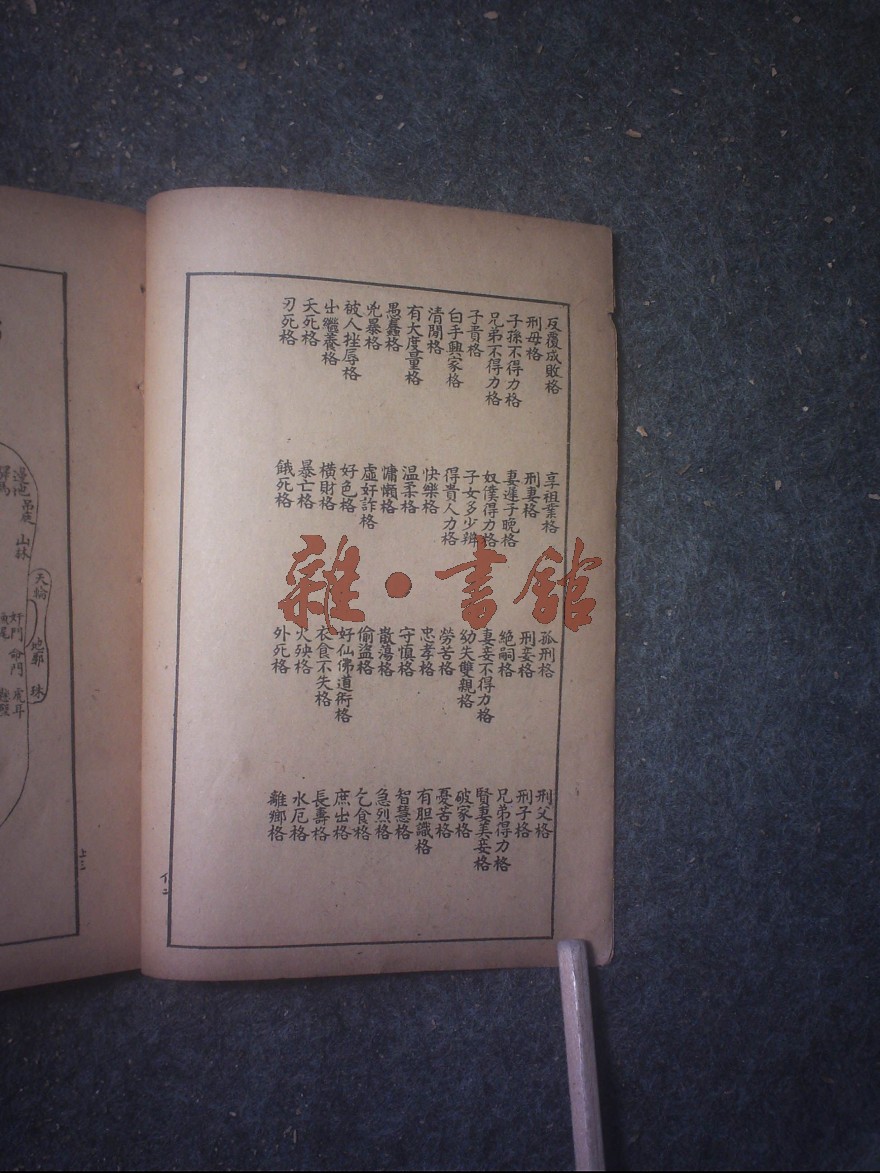 反覆成敗格
享祖業格
孤刑格
刑父格
刑母格
刑妻格
刑妾格
刑子格
子孫不得力格
妻遲子晚格
絕嗣格
兄弟得力格
兄弟不得力格
奴僕得力格
妻妾不得力格
賢妻美妾格
子貴格
子女多少辨
幼失雙親格
破家格
白手興家格
得貴人力格
勞苦格
憂苦格
清閒格
快樂格
忠孝格
有胆識格
有大度量格
温柔格
守慎格
智慧格
愚蠢格
慵懶格
散蕩格
急烈格
兇暴格
虛奸詐格
偷盜格
乞食格
被人挫辱格
好色格
好仙佛道術格
庶出格
出繼養格
橫財格
衣食不失格
長壽格
夭死格
暴亡格
火殃格
水厄格
刃死格
餓死格
外死格
離鄉格
下二
雜·書舘
邊地
吊庭
山林
天輪
地郭
珠
奸門
命門
虎耳
上三